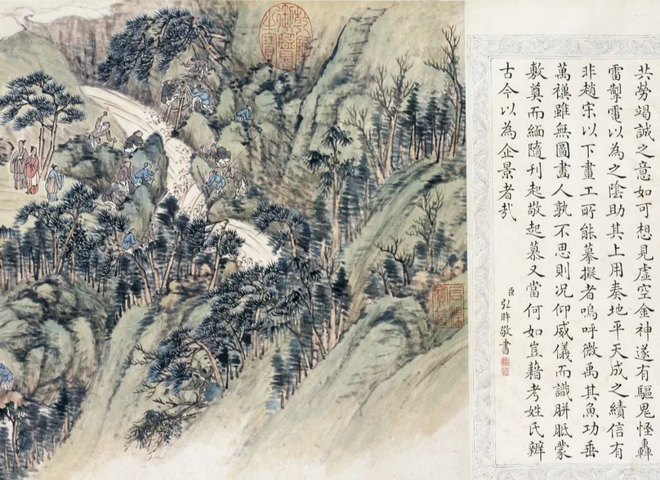 共勞竭誠之意如可想見虛空金神遂有驅鬼怪轟
雷掣電以為之陰助其上用奏地平天成之績信有
非趙宋以下畫工所能摹擬者嗚呼微禹其魚功垂
萬禩雖無圖畫人孰不思則況仰威儀而識胼胝蒙
敷奠而緬隨刊起敬起慕又當何如豈藉考姓氏辨
古今以為企景者哉
臣弘旿敬書